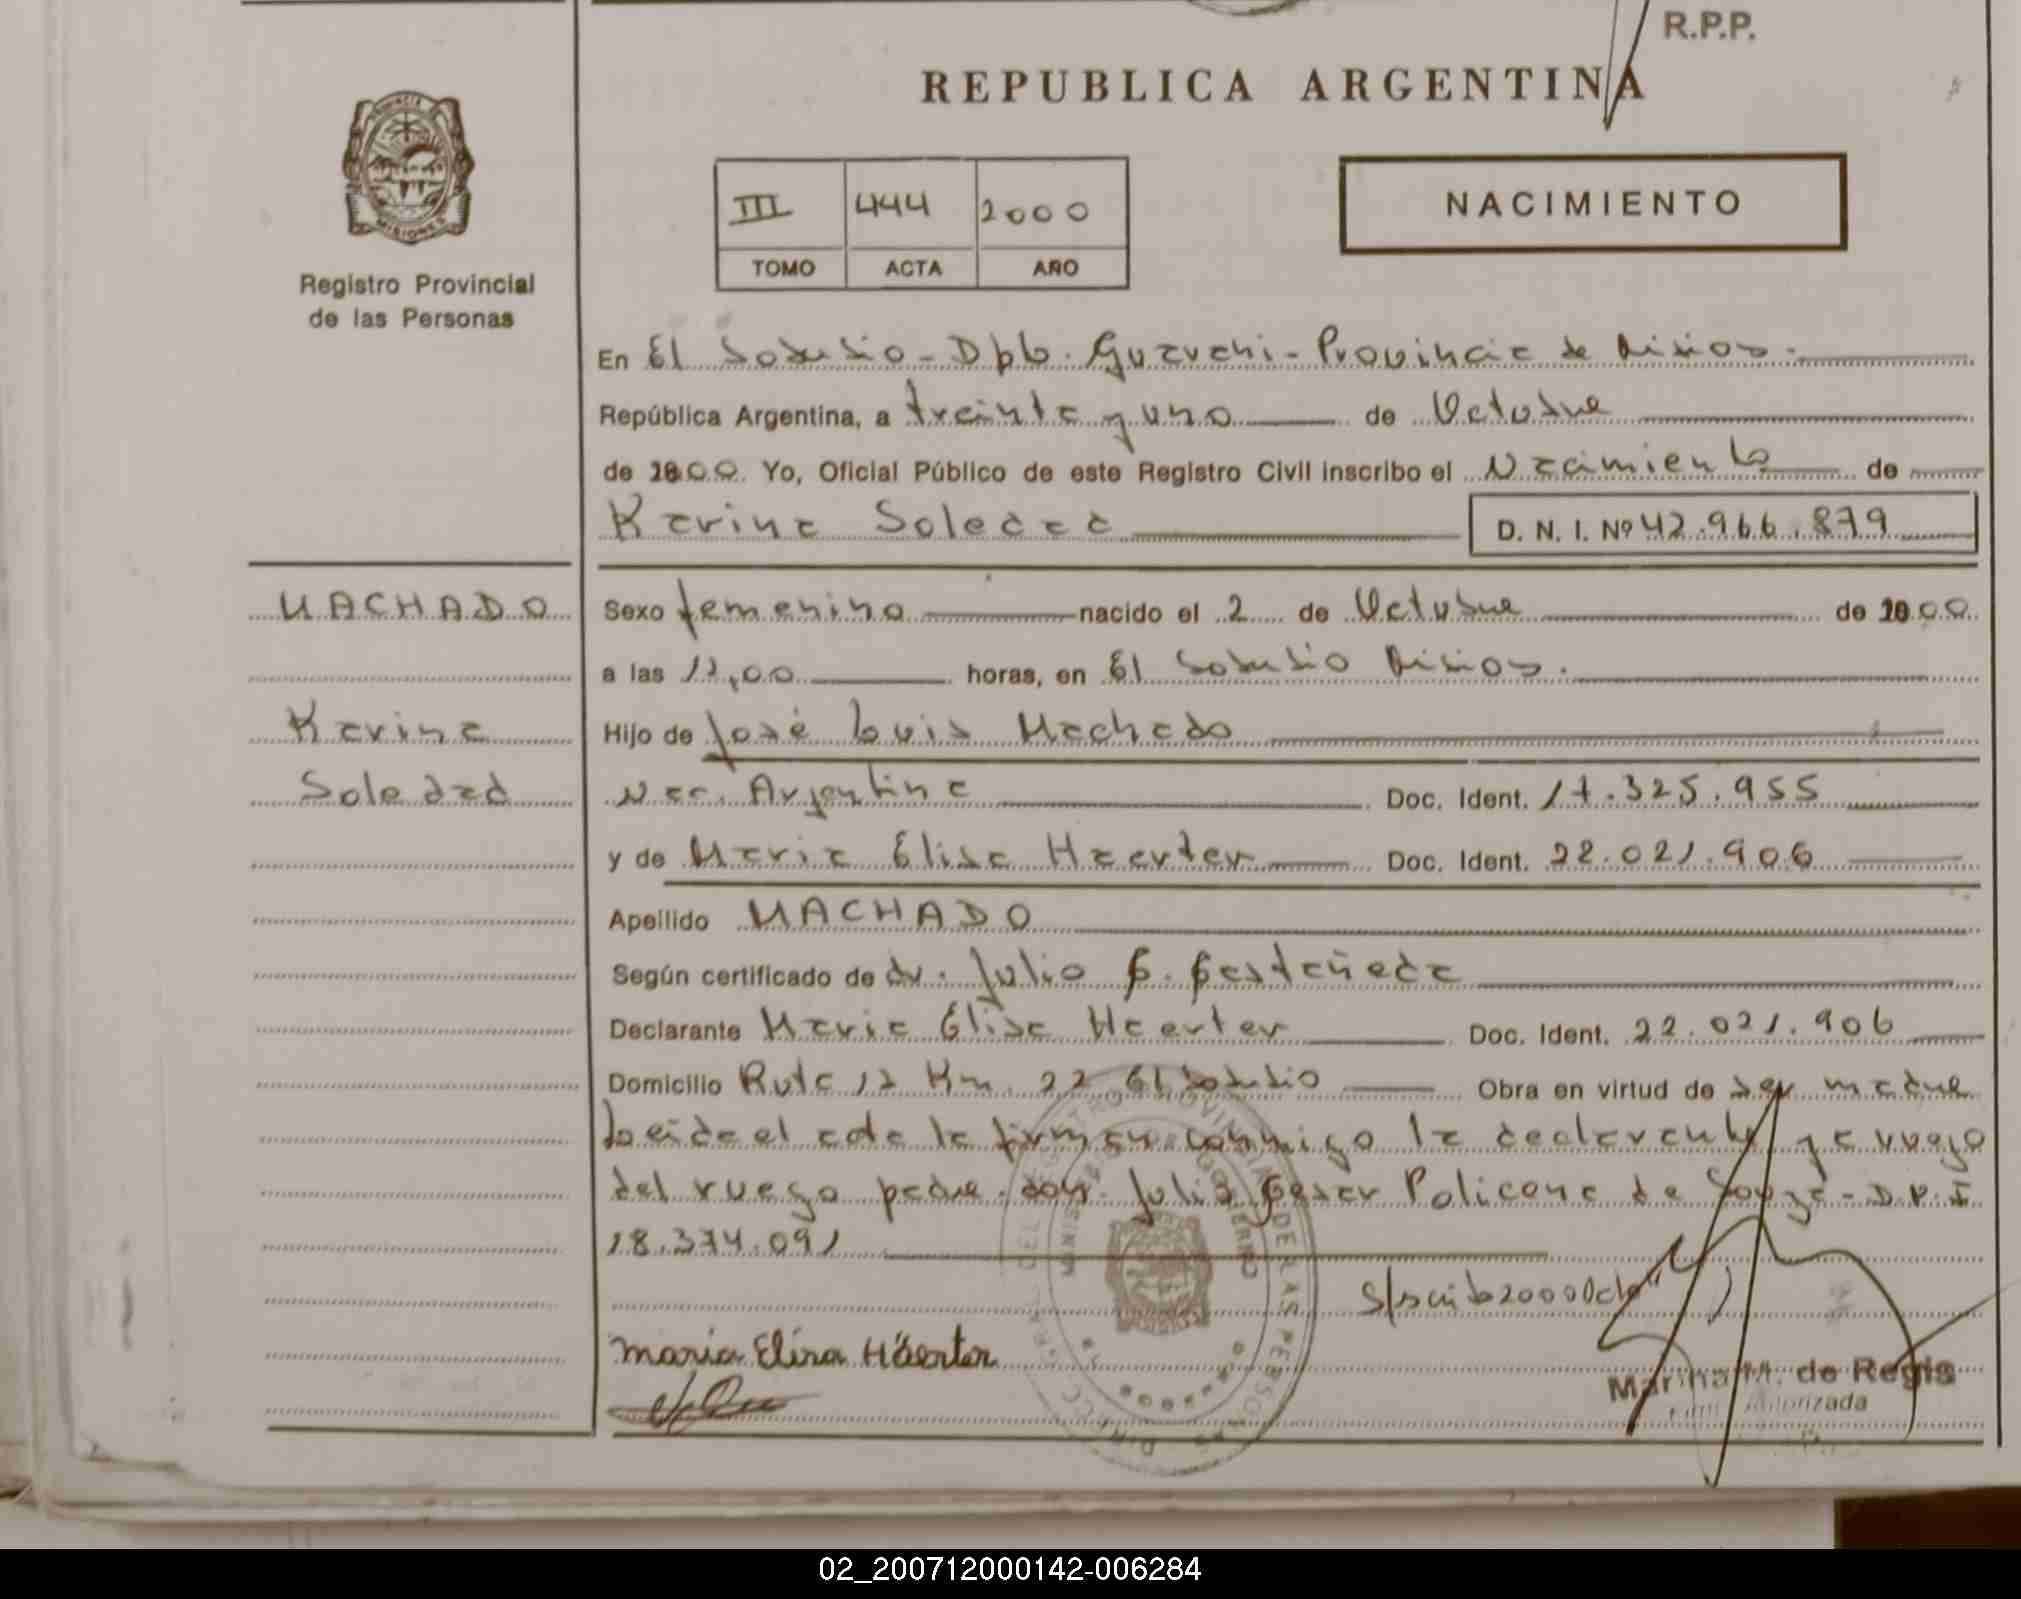 R.P.P.
REPUBLICA ARGENTINA
III 444 2000
TOMO ACTA AÑO
NACIMIENTO
MISIONES
Registro Provincial
de las Personas
En El Soberbio - Dpto. Guarani - Provincia de Misiones.
República Argentina, a treinta y uno de Octubre
de 2000. Yo, Oficial Público de este Registro Civil inscribo el Nacimiento de
Karina Soledad D. N. I. Nº 42.966.879
MACHADO
Karina
Soledad
Sexo femenino nacido el 2 de Octubre de 2000
a las 12,00 horas, en El Soberbio Misiones.
Hijo de José Luis Machado
Nac. Argentina Doc. Ident. 17.325.955
y de Maria Elisa Haerter Doc. Ident. 22.021.906
Apellido MACHADO
Según certificado de dr. Julio C. Castañeda
Declarante Maria Elisa Haerter Doc. Ident. 22.021.906
Domicilio Ruta 12 Km. 22 El Soberbio Obra en virtud de ser madre
Leida el acta la firman conmigo la declarante y a ruego
del ruego padre. don. Julio Cesar Policone de Souza - D.N.I
18.374.091
S/scrito 2000 Octo"
Maria Elisa Häerter
Marina M. de Regis
Autorizada
02_200712000142-006284